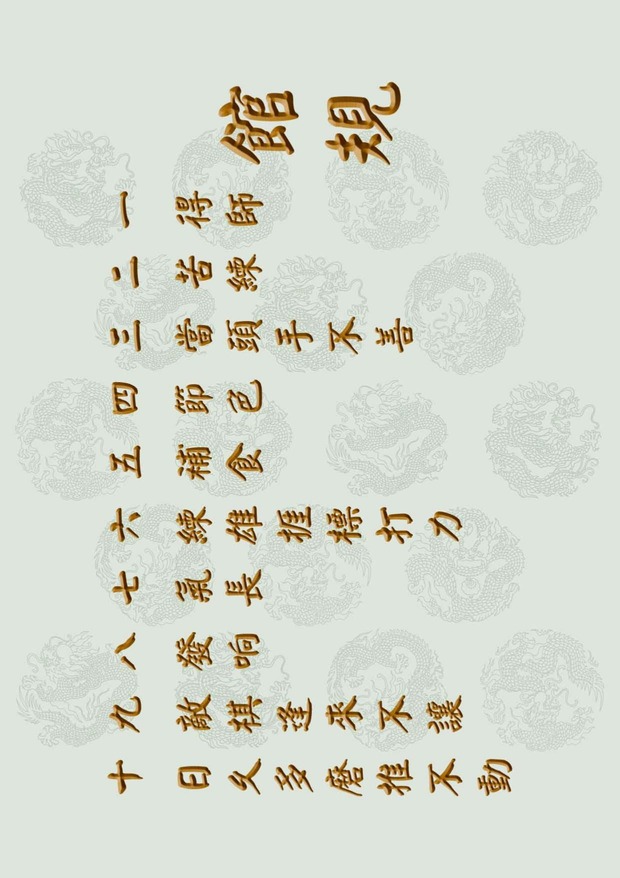 館規
一 得師
二 苦練
三 當頭手不善
四 節色
五 補食
六 練雄捱標打力
七 氣長
八 發响
九 敵棋逢來不讓
十 日久多磨推不動